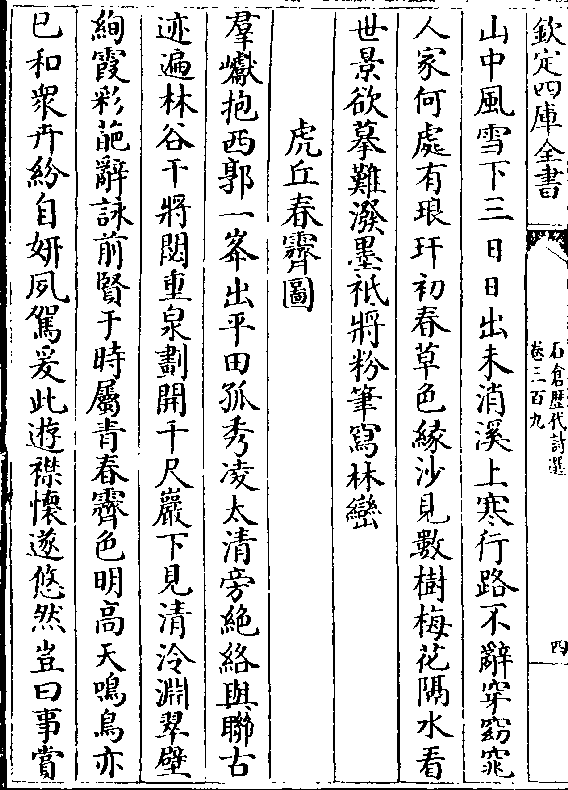 欽定四庫全書
石倉歴代詩選
卷三百九
四
山中風雪下三日日出未消溪上寒行路不辭穿窈窕
人家何處有琅玕初春草色緣沙見數樹梅花隔水看
世景欲摹難潑墨祇將粉筆寫林巒
虎丘春霽圖
羣巘抱西郭一峯出平田孤秀凌太清旁絶絡與聯古
迹遍林谷干將閟重泉劃開千尺巖下見清泠淵翠壁
絢霞彩葩辭詠前賢于時屬青春霽色明高天鳴鳥亦
已和衆卉紛自妍夙駕爰此遊襟懷遂悠然豈曰事賞